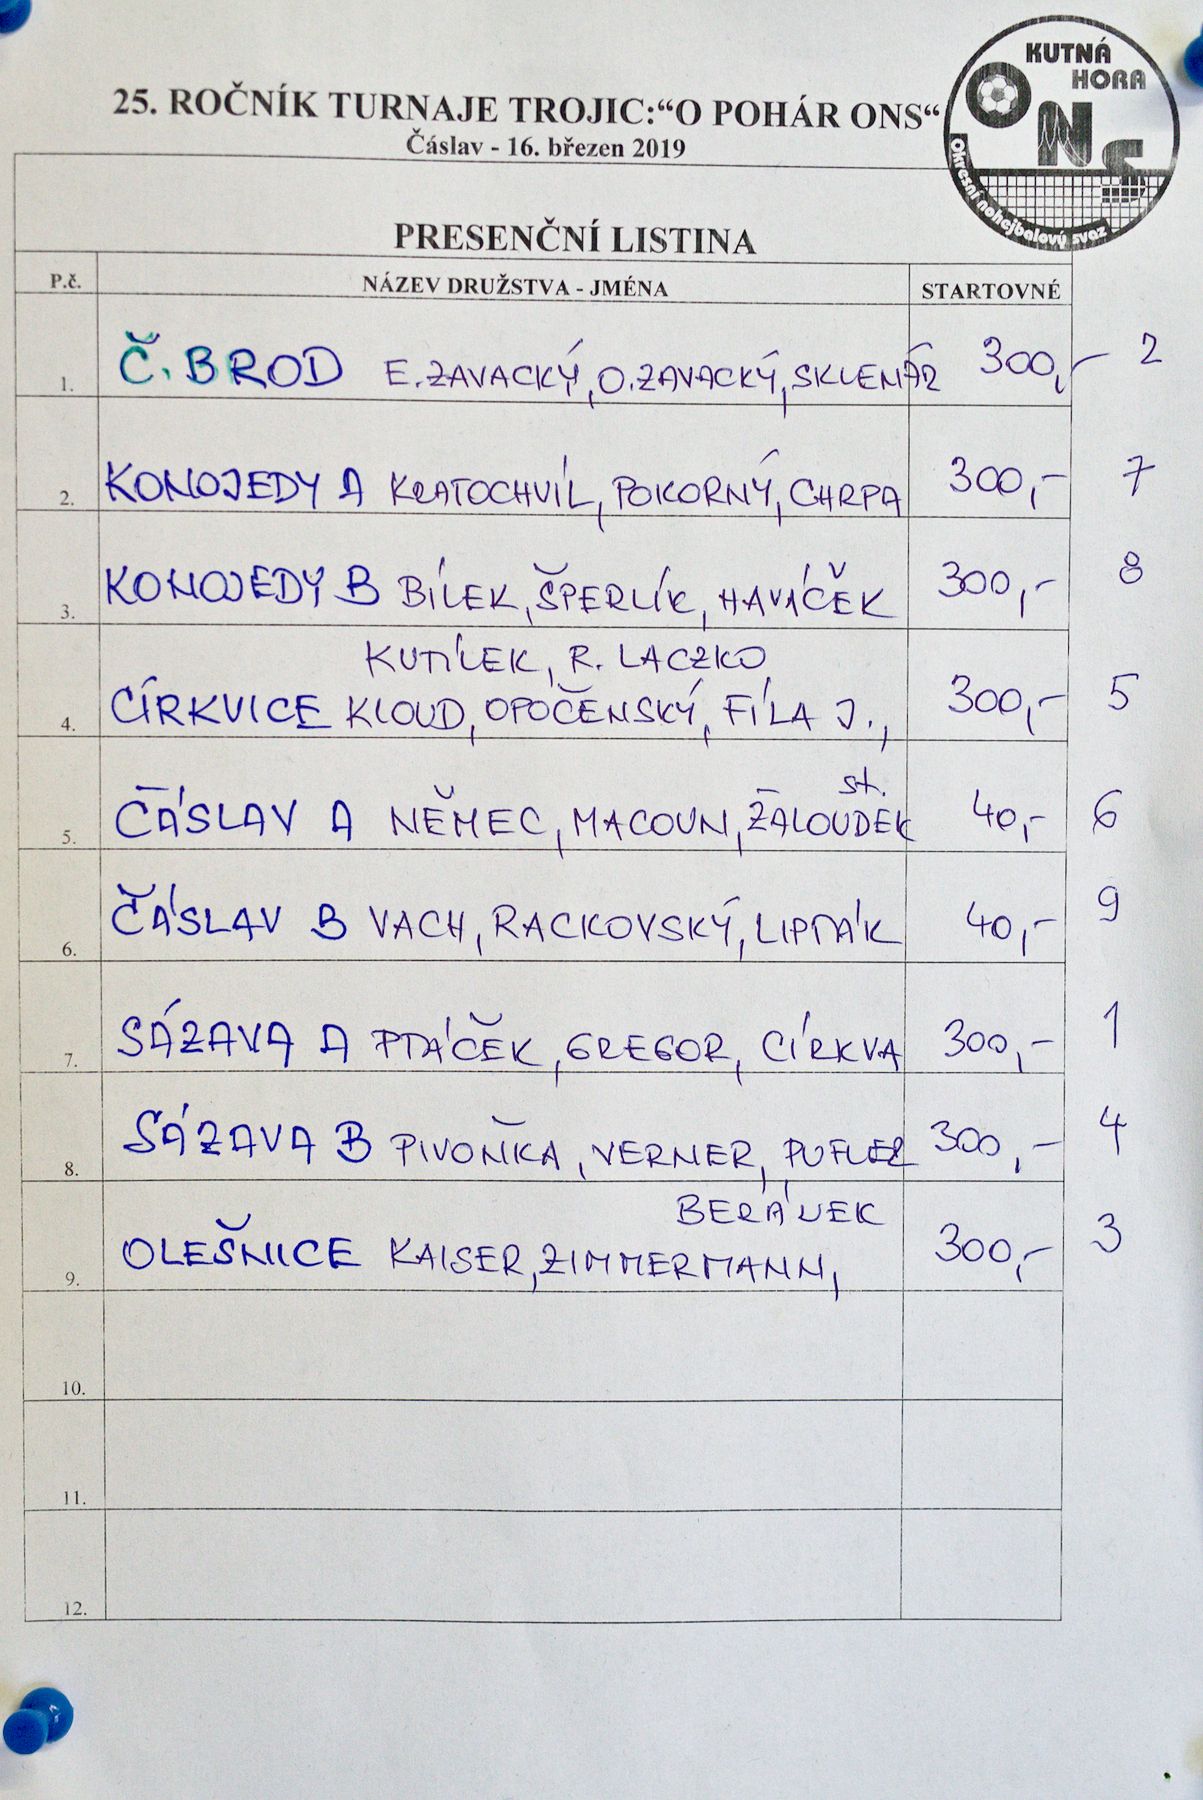 KUTNÁ
HORA
ONS
Okresní nohejbalový svaz
25. ROČNÍK TURNAJE TROJIC:“O POHÁR ONS“
Čáslav - 16. březen 2019
PRESENČNÍ LISTINA
P.č. NÁZEV DRUŽSTVA - JMÉNA STARTOVNÉ
1. Č. BROD E.ZAVACKÝ, O.ZAVACKÝ, SKLENÁŘ 300,- 2
2. KONOJEDY A KRATOCHVÍL, POKORNÝ, CHRPA 300,- 7
3. KONOJEDY B BÍLEK, ŠPERLÍK, HAVÁČEK 300,- 8
KUTÍLEK, R. LACZKO
4. CÍRKVICE KLOUD, OPOČENSKÝ, FÍLA J., 300,- 5
st.
5. ČÁSLAV A NĚMEC, MACOUN, ŽALOUDEK 40,- 6
6. ČÁSLAV B VACH, RACKOVSKÝ, LIPTÁK 40,- 9
7. SÁZAVA A PTÁČEK, GREGOR, CÍRKVA 300,- 1
8. SÁZAVA B PIVOŇKA, VERNER, PUFLER 300,- 4
BERÁNEK
9. OLEŠNICE KAISER, ZIMMERMANN, 300,- 3
10.
11.
12.